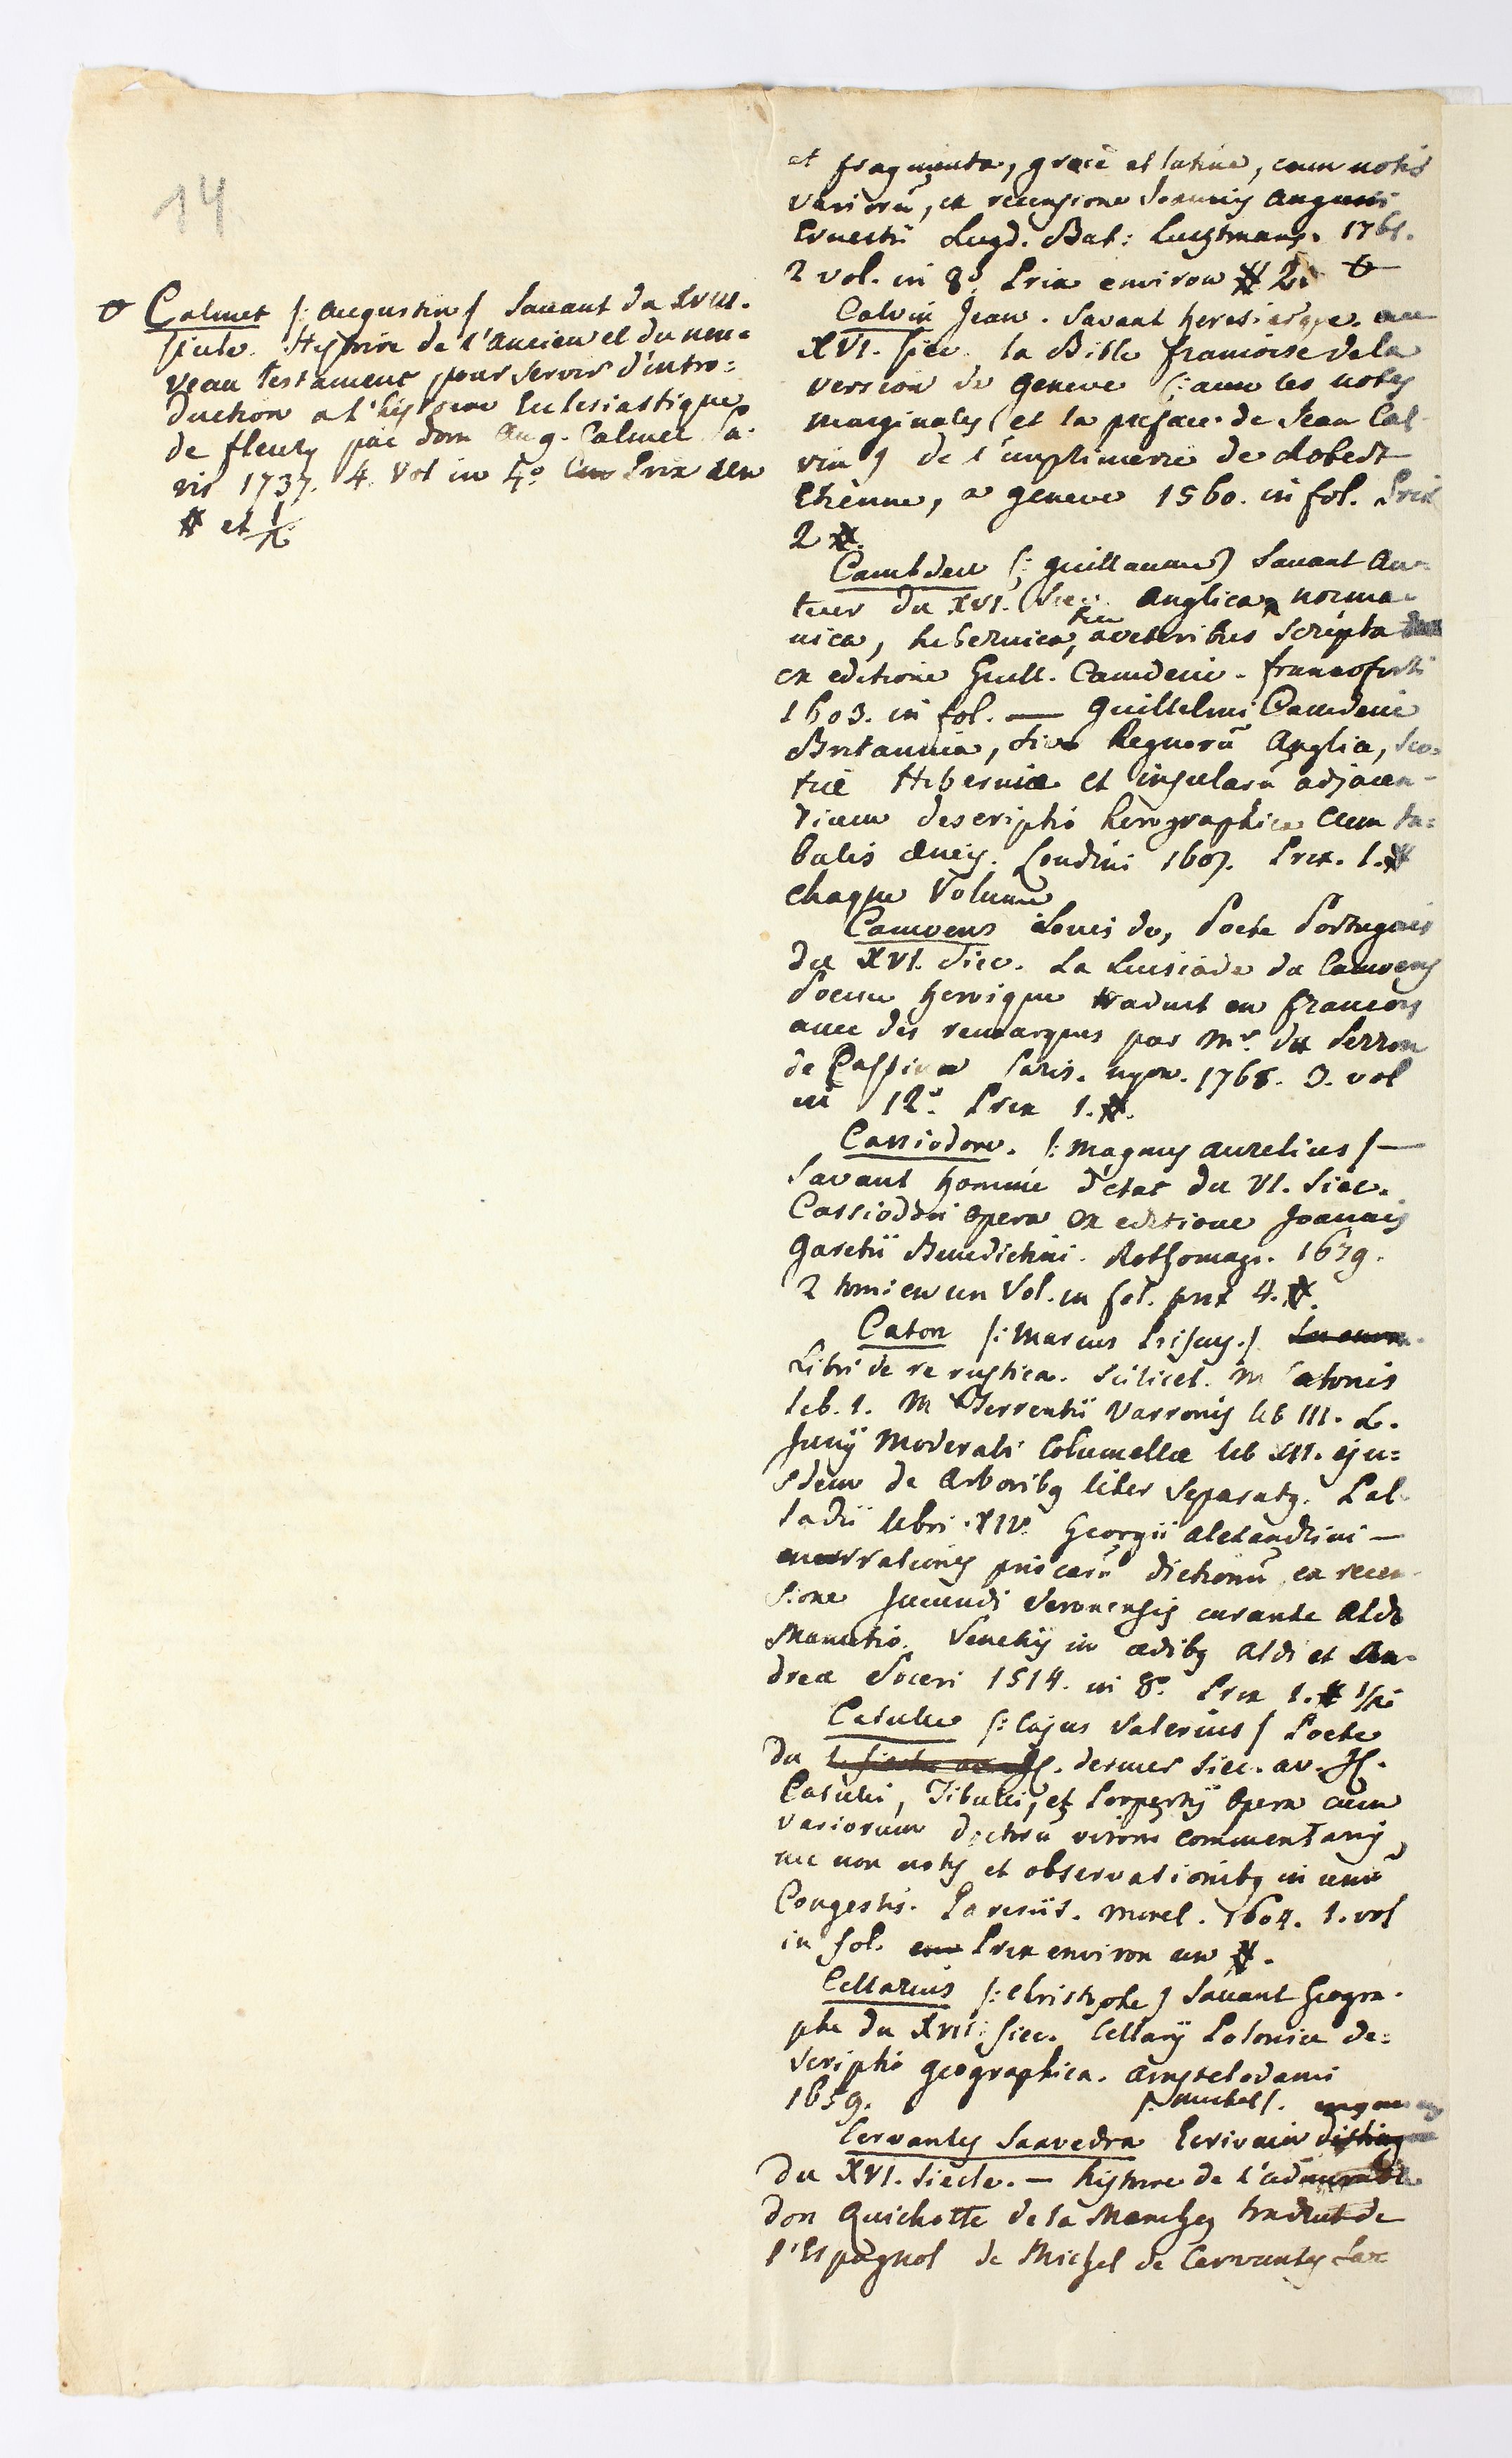 14
Calmet /: Augustin / Savant du XVIII.
siecle. Histoire de l'Ancien et du nou=
veau testament, pour servir d'intro=
duction a l'histoire Ecclesiastique
de fleury par dom Aug. Calmet Pa-
ris 1737. 4. Vol in 4.o Prix un
# et 1/2.
et fragmenta, graecè et latine, cum notis
variorũ, ex recensione Joannis Augusti
Ernestii Lugd. Bat: Luchtmans. 1761.
2 vol. in 8.o Prix environ # 2.
Calvin Jean. Savant heresiarque. au
XVI. siec. la Bible francoise de la
version de Geneve (: avec les notes
marginales (et la preface de Jean Cal-
vin) de l'imprimerie de Robert
Etienne, a Geneve 1560. in fol. Prix
2 #.
Cambden (: Guillaume) Savant Au-
teur du XVI. Siec. Anglica, norma-
nica, hibernica, a veteribus scripta
ex editione Guill. Camdeni. francofurti
1603. in fol. — Guillelmi Camdeni
Britannia, sive Regnorũ Anglia, Sco=
tiæ Hiberniæ et insularũ adjacen-
tium descriptio horographica cum ta=
bulis æneis. Londini 1607. Prix. 1. #
chaque Volume
Camoens Louis de, Poete Portugais
du XVI. Siec. La Lusiade du Camoens
Poeme heroique traduit en francois
avec des remarques par Mr. du Perron
de Castera Paris. nyon. 1768. 3. vol
in 12.o Prix 1. #.
Cassiodore. /: Magnus Aurelius / —
Savant homme d'etat du VI. Siec.
Cassiodori opera ex editione Joannis
Garetii Benedictini. Rothomagi. 1679.
2 tomi en un Vol. in fol. prix 4. #.
Caton /: Marcus Priscus. /
Libri de re rustica. Scilicet. M Catonis
lib. 1. M Terrentii Varronis lib III. L.
Junij Moderati Columellæ lib XII. eju=
sdem de Arboribq liber separatq. Pal-
ladii libri XIV. Georgii Alexandrini —
enarrationes priscarũ dictionũ, ex recen-
sione Jucundi Veronensis curante Aldo
Manutio. Venetijs in ædibq Aldi et An-
dreæ Soceri 1514. in 8.o Prix 1. #
Catulle /: Cajus Valerius / Poete
du dernier Siec. av. JC.
Catulli, Tibulli, et Propertij Opera cum
variorum doctorũ virorũ commentarijs,
nec non notis et observationibq in unũ
Congestis. Parisiis. morel. 1604. 1. vol
in fol. Prix environ un #.
Cellarius /: Christophe / Savant Geogra-
phe du XVII: siec. Cellarij Poloniæ de=
scriptio geographica. Amstelodami
1659. /: Michel /.
Cervantes Saavedra Ecrivain
du XVI. Siecle. — histoire de l'admirable
don Quichotte de la Manche, traduit de
l'Espagnol de Michel de Cervantes Par